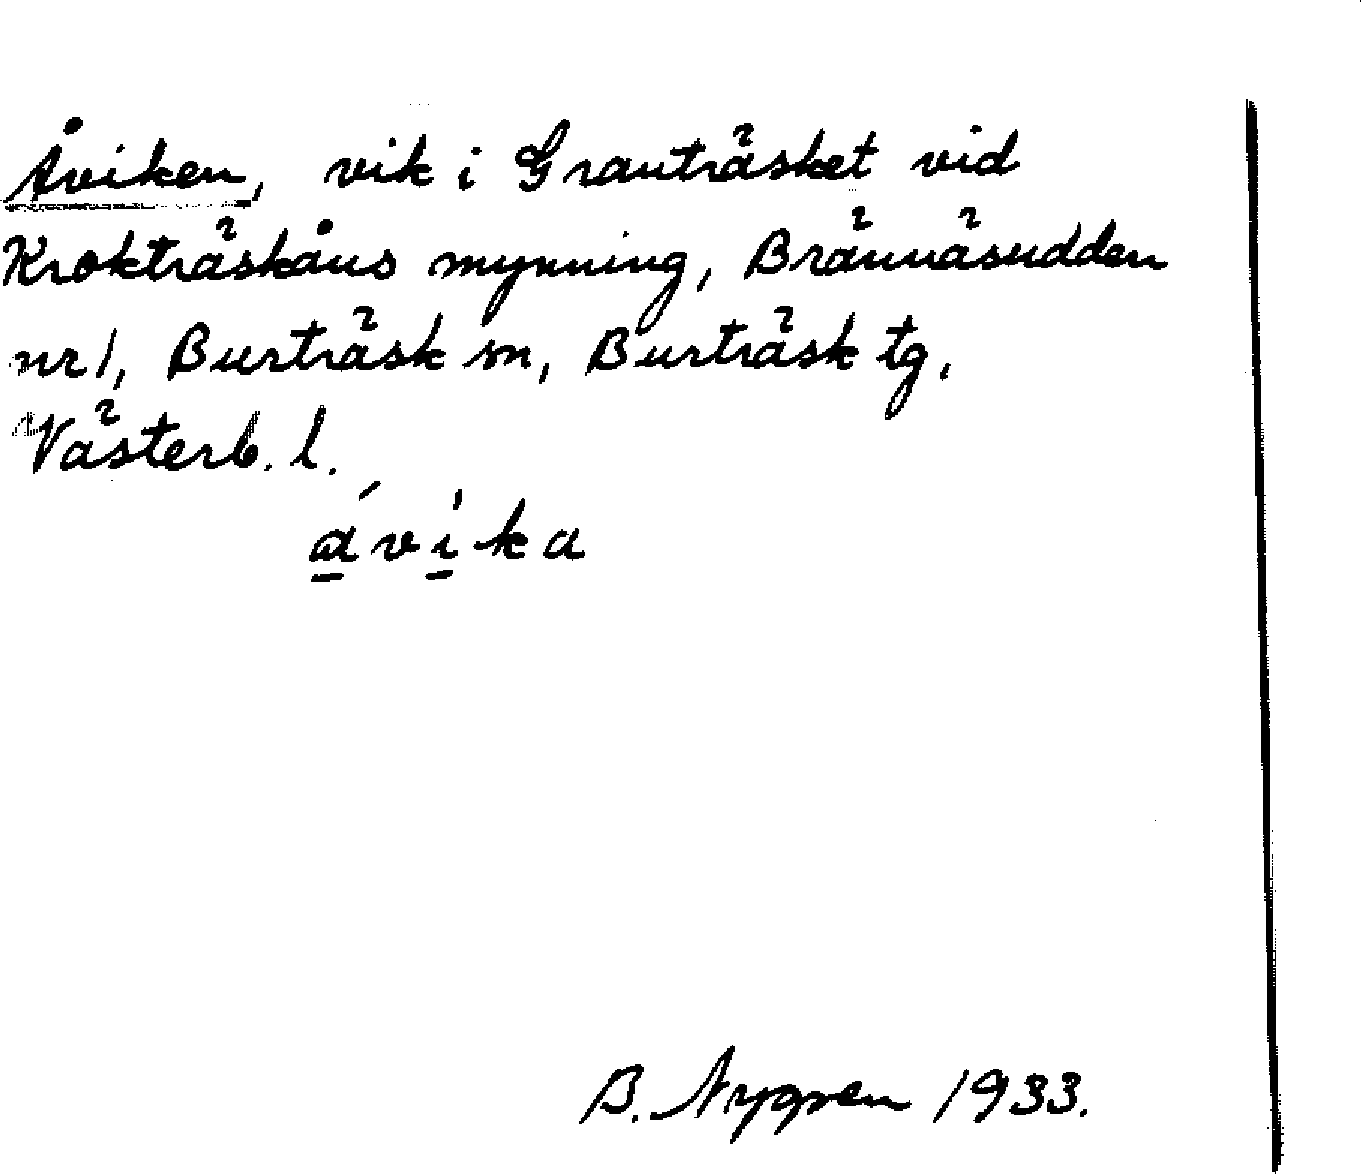 Åviken, vik i Granträsket vid
Krokträskåns mynning, Brännäsudden
nr 1, Burträsk sn, Burträsk tg,
Västerb. l.
a̱´vi̱`ka
B. Nygren 1933.